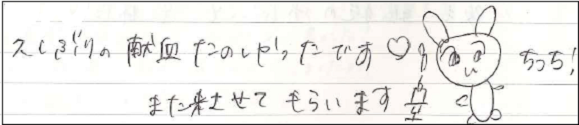 久しぶりの献血たのしかったです♡
ちっち!
また来させてもらいます